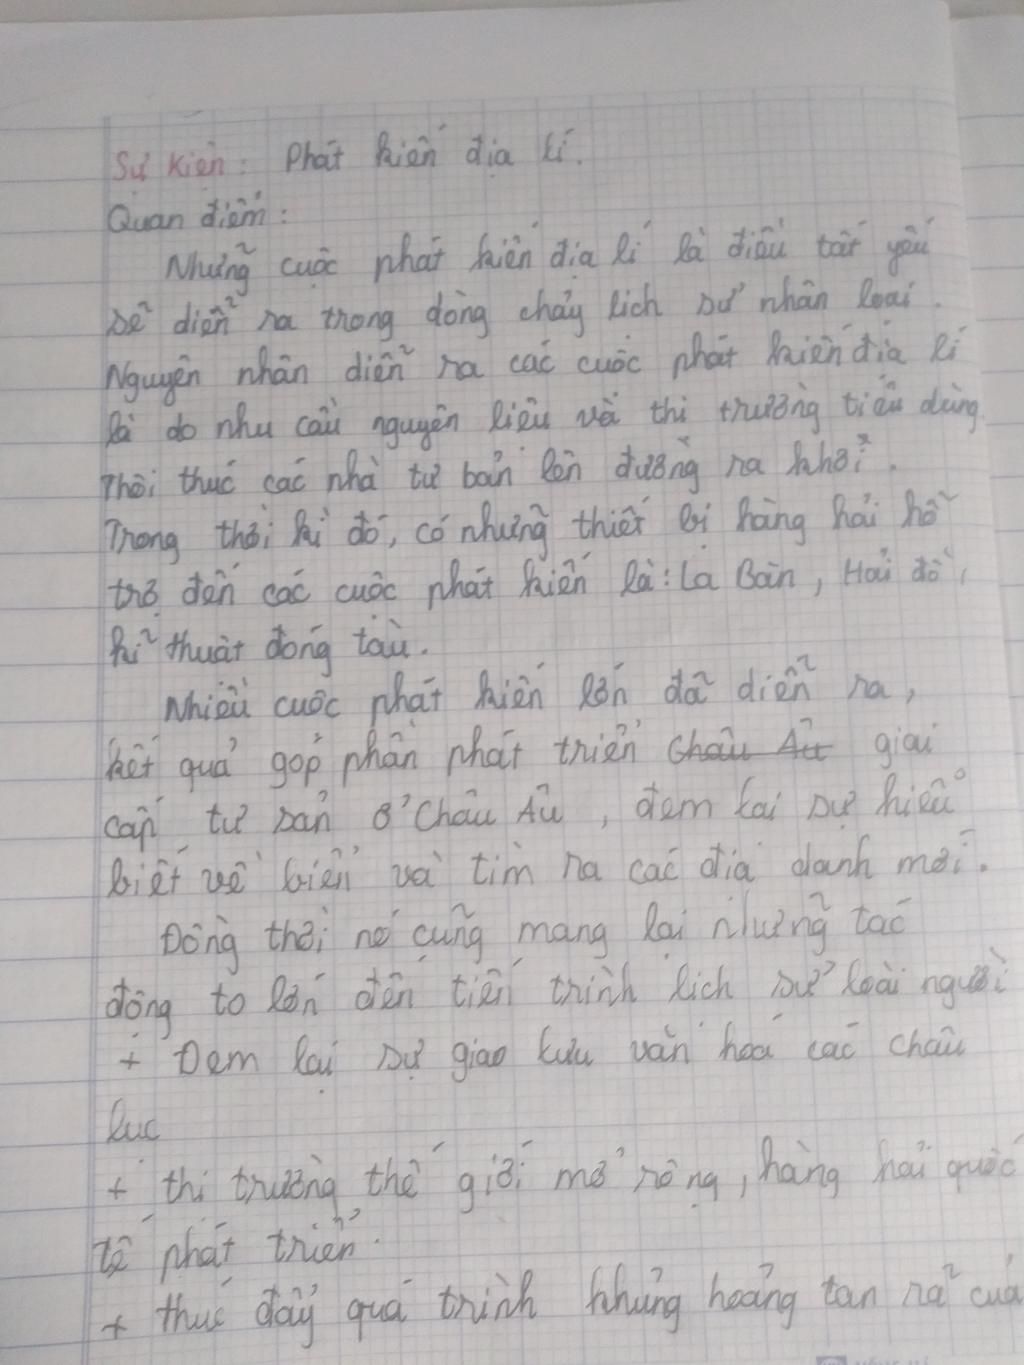 Sự kiện: Phát kiến địa lí.
Quan điểm:
Những cuộc phát kiến địa lí là điều tất yếu
sẽ diễn ra trong dòng chảy lịch sử nhân loại.
Nguyên nhân diễn ra các cuộc phát kiến địa lí
là do nhu cầu nguyên liệu và thị trường tiêu dùng.
Thôi thúc các nhà tư bản lên đường ra khơi.
Trong thời kì đó, có những thiết bị hàng hải hỗ
trợ đến các cuộc phát kiến là: La Bàn, Hải đồ,
kĩ thuật đóng tàu.
Nhiều cuộc phát kiến lớn đã diễn ra,
kết quả góp phần phát triển Châu Âu giai
cấp tư sản ở Châu Âu, đem lại sự hiểu
biết về biển và tìm ra các địa danh mới.
Đồng thời nó cũng mang lại những tác
động to lớn đến tiến trình lịch sử loài người
+ Đem lại sự giao lưu văn hoá các châu
lục
+ thị trường thế giới mở rộng, hàng hải quốc
tế phát triển.
+ thúc đẩy quá trình khủng hoảng tan rã của